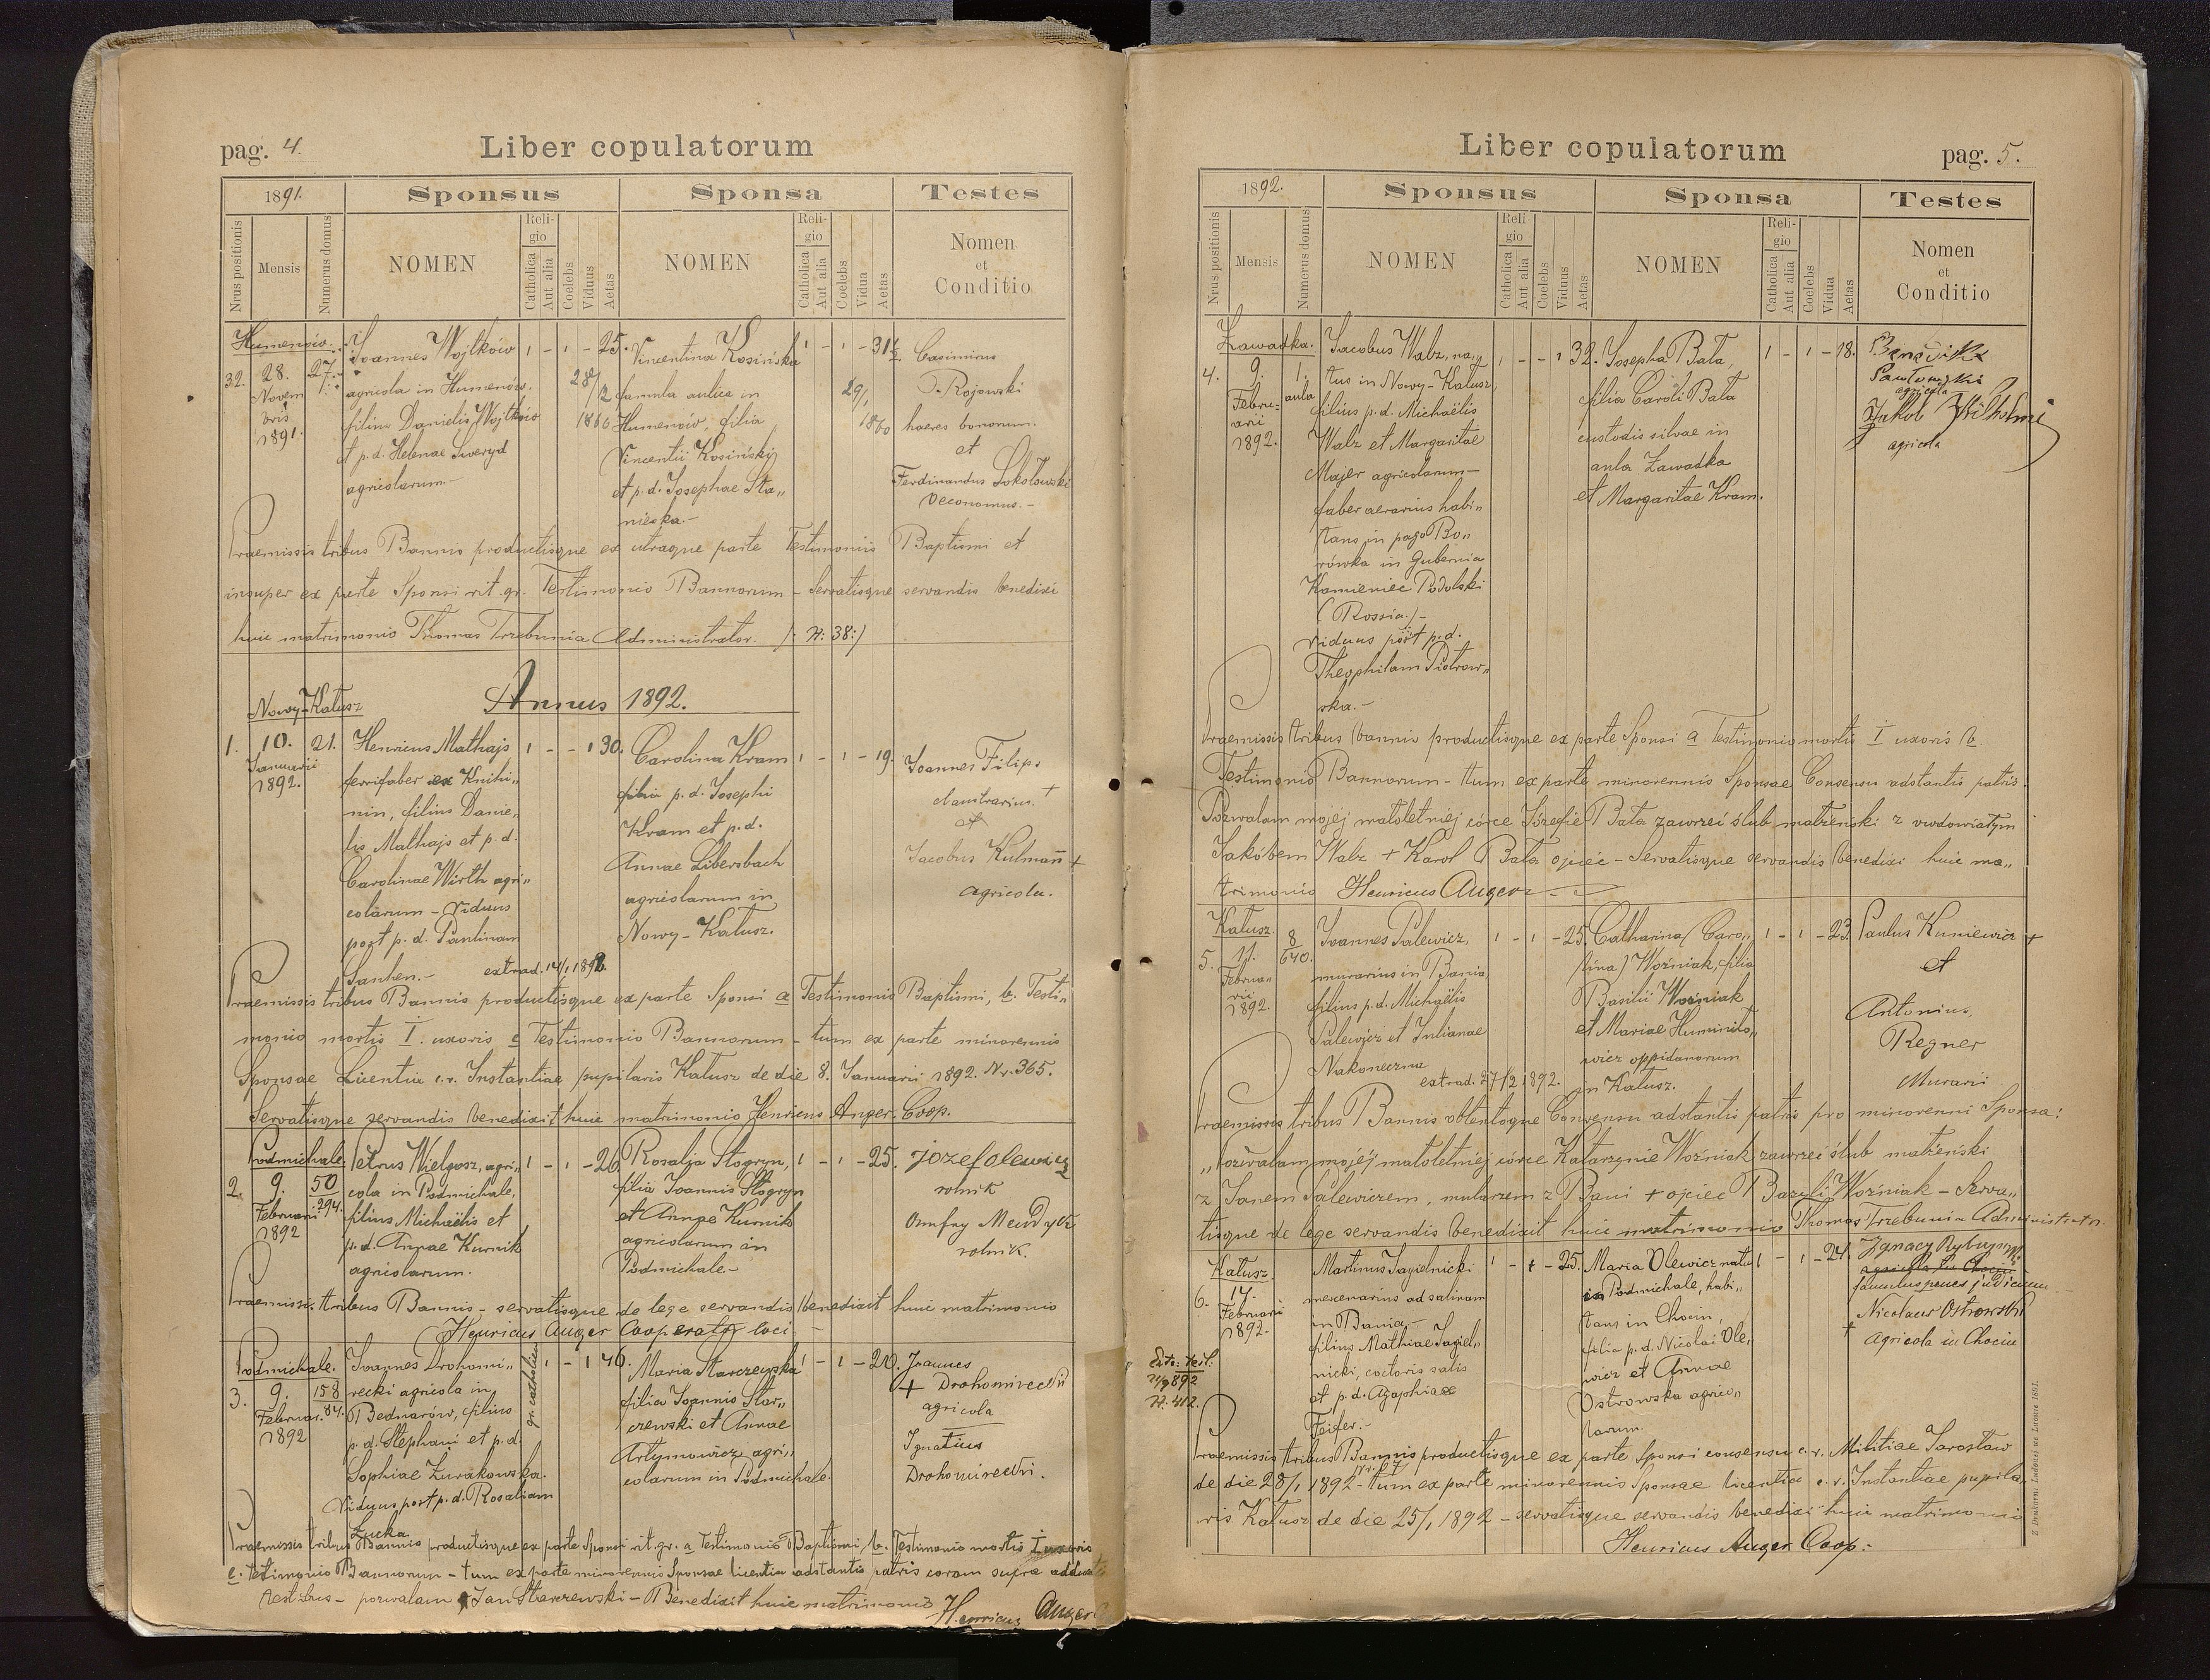 pag. 4.
Liber copulatorum
1891.
Sponsus
Sponsa
Testes
Nrus positionis
Mensis
Numerus domus
NOMEN
Religio
Catholica
Aut alia
Coelebs
Viduus
Aetas
NOMEN
Religio
Catholica
Aut alia
Coelebs
Vidua
Aetas
Nomen
et
Conditio
Humenów.
32.
28.
Novem
bris
1891.
27.
Joannes Wojtków
agricola in Humenów.
filius Danielis Wojtków
et p.d. Helenae Sweryd
agricolarum.-
1 - 1 - 25.
28/
/2
1866
Vincentina Kosińska
famula aulica in
Humenów, filia
Vincentii Kosiński
et p.d. Josephae Sta„
niecka.-
1 - 1 - 31½
29/1
1860
Casimirus
Rojowski
haeres bonorum.
et
Ferdinandus Sokołowski
Oeconomus.-
Praemissis tribus Bannis productisque ex utraque parte Testimoniis Baptismi et
insuper ex parte Sponsi rit. gr. Testimonio Bannorum - Servatisque servandis benedixi
huic matrimonio Thomas Trzebunia Administrator. /: N: 38:/
Annus 1892.
Nowy-Kałusz
1.
10.
Januarii
1892.
21.
Henricus Mathajs
ferrifaber ex Knihi„
nin, filius Danie„
lis Mathajs et p.d.
Carolinae Wirth agri„
colarum - Viduus
post p.d. Paulinam
Sanhen.-
1 - - 1 30.
Carolina Kram
filia p.d. Josephi
Kram et p.d.
Annae Libersbach
agricolarum in
Nowy-Kałusz.
1 - 1 - 19.
Joannes Filips
claustrarius. +
et
Jacobus Kulmann +
agricola.
extrad. 14/1 1892.
Praemissis tribus Bannis productisque ex parte Sponsi a Testimonio Baptismi, b. Testi„
monio mortis I. uxoris c Testimonio Bannorum - tum ex parte minorennis
Sponsae Licentia c.r. Instantiae pupilaris Kałusz de die 8. Januarii 1892. Nr. 365.
Servatisque servandis benedixit huic matrimonio Henricus Auger. Coop.
Podmichale.
2.
9.
Februarii
1892
50
294.
Petrus Wielgosz, agri„
cola in Podmichale,
filius Michaëlis et
p.d. Annae Kurnik
agricolarum.
1 - 1 - 26
Rosalja Stogryn,
filia Joannis Stogryn
et Annae Kurnik
agricolarum in
Podmichale.-
1 - 1 - 25.
Józef Olewicz
rolnik
Onufry
rolnik.
Praemissis tribus Bannis - servatisque de lege servandis benedixit huic matrimonio
Henricus Auger Cooperator loci
Podmichale.
3.
9.
Februar.
1892
158
84.
Joannes Drohomi„
recki agricola in
Bednarów, filius
p.d. Stephani et p.d.
Sophiae Żurakowska.
Viduus post p.d. Rosaliam
Łucka
gr. catholicus
1 - 1 46.
Maria Starczewska
filia Joannis Star„
czewski et Annae
Artymowicz agri„
colarum in Podmichale.
1 - 1 - 20.
Joannes
+ Drohomirecki
agricola
Ignatius
Drohomirecki.
Praemissis tribus Bannis productisque ex parte Sponsi rit. gr. a Testimonio Baptismi, b. Testimonio mortis I uxoris
c. Testimonio Bannorum - tum ex parte minorennis Sponsae licentia adstantis patris coram supra
testibus - pozwalam Jan Starczewski - Benedixit huic matrimonio Henricus Auger
Liber copulatorum
pag. 5.
1892.
Sponsus
Sponsa
Testes
Nrus positionis
Mensis
Numerus domus
NOMEN
Religio
Catholica
Aut alia
Coelebs
Viduus
Aetas
NOMEN
Religio
Catholica
Aut alia
Coelebs
Vidua
Aetas
Nomen
et
Conditio
Zawadka.
4.
9.
Febru-
arii
1892.
1.
aula
Jacobus Walz, na„
tus in Nowy-Kałusz,
filius p.d. Michaëlis
Walz et Margaritae
Majer agricolarum-
faber aerarius habi„
tans in pago Bo„
rówka in Gubernia
Kamieniec Podolski
(Rossia.)-
viduus post p.d.
Theophilam Piotrow„
ska.-
1 - - 1 32.
Josepha Bata,
filia Caroli Bata
custodis silvae in
aula Zawadka
et Margaritae Kram.
1 - 1 - 18.
Pawłowski
agricola
Jakob Wilhelmi
agricola
Praemissis tribus bannis productisque ex parte Sponsi a Testimonio mortis I uxoris b.
Testimonio Bannorum - tum ex parte minorennis Sponsae Consensu adstantis patris.
Pozwalam mojéj małoletniéj córce Józefie Bata zawrzeć ślub małżeński z wdowiałym
Jakóbem Walz + Karol Bata ojciec - Servatisque servandis benedixi huic ma„
trimonio Henricus Auger
Kałusz.
5.
11.
Februa-
rii
1892.
8
640.
Joannes Salewicz,
murarius in Bania,
filius p.d. Michaëlis
Salewicz et Julianae
Nakoneczna
extrad. 27/2 1892.
1 - 1 - 25.
Catharina (Caro„
lina) Woźniak, filia
Basilii Woźniak
et Mariae Huminiło„
wicz oppidanorum
in Kałusz.
1 - 1 - 23.
Paulus Kuniewicz +
et
Antonius
Regner
Murarii
Praemissis tribus Bannis obtentoque Consensu adstantis patris pro minorenni Sponsa:
„Pozwalam mojéj małoletniéj córce Katarzynie Woźniak zawrzeć ślub małżeński
z Janem Salewiczem, mularzem z Bani + ojciec Bazyli Woźniak - Serva„
tisque de lege servandis benedixit huic matrimonio Thomas Trzebunia Administrator.
Kałusz.
6.
14.
Februarii
1892.
Martinus Jagielnicki
mercenarius ad salinam
in Bania.-
filius Mathiae Jagiel„
nicki, coctoris salis
et p.d. Agaphiae
Feifer.-
1 - 1 - 25.
Maria Olewicz nata
in Podmichale, habi„
tans in Chocin,
filia p.d. Nicolai Ole„
wicz et Annae
Ostrowska agrico„
larum.
1 - 1 - 24.
Ignacy
agricola in Chocin
famulus penes judicium
Nicolaus Ostrowski
+ Agricola in Chocin
Extr: test:
24/9 892
N. 412.
Praemissis tribus Bannis productisque ex parte Sponsi consensu c.r. Militiae Jarosław
de die 28/1 1892 - tum ex parte minorennis Sponsae licentia c.r. Instantiae pupila„
ris Kałusz de die 25/1 1892 - servatisque servandis benedixi huic matrimonio
Henricus Auger Coop:
Z Drukarni Ludowej we Lwowie 1891.